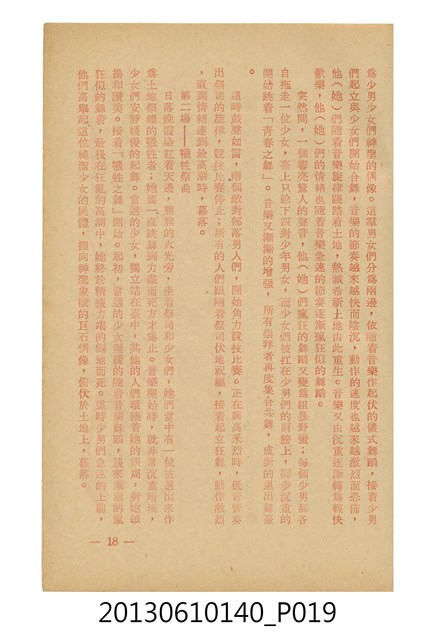 爲少男少女們神聖的偶像。這羣男女們分爲兩邊，依隨着音樂作起伏的儀式舞蹈，接着少男
們起立與少女們開始合舞，音樂的節奏越來越快而陰沉，動作的速度也越來越激烈而恐怖，
他（她）們隨着音樂旋律踐踏着土地，熱誠希祈土地由此重生。音樂又由沉重逐漸轉爲輕快
歡樂，他（她）們的情緒也隨着音樂急速的節奏逐漸瘋狂似的舞蹈。
突然間，一個響亮驚人的聲音，他（她）們瘋狂的舞蹈又變爲粗暴野蠻；每個少男都各
自拖走一位少女，臺上只餘下四對少年男女，而少女們被扛在少男們的肩膀上，脚步沉重的
開始跳着「青春之舞」。音樂又漸漸的增强，所有崇拜者再度集合共舞，成對的退出舞臺
這時鼓聲如雷，兩個敵對部落男人們，開始角力競技比賽。正在興高釆烈時，低音管奏
出祭司的旋律，競技比賽停止；所有的人們跟隨着祭司伏地祝福，接着起立狂舞，動作激烈
，直到情緒達到最高潮時，幕落。
第二場——犧牲祭曲
日落晚霞染紅着天邊，熊熊的火光旁，坐着祭司和少女們，她們當中有一位被選出來作
爲土地祭禮的犧牲者；她要一直跳舞到力盡而死方才爲止。音樂開始時，就非常沉重增强，
少女們安靜緩慢的起舞。當選的少女，獨立站在臺中，其他的人們環繞着她的四周，對她頌
揚和讚美。接着「犧牲之舞」開始。起初，當選的少女緩緩的隨着音樂舞蹈，後來漸漸的瘋
狂似的舞着，最後在狂亂的高潮中，她終於精疲力竭的倒地而死。臺上少男們急速的上前，
他們高舉起這位純潔少女的屍體，擁向神聖象徵的巨石偶像，俯伏於土地上，幕落。
— 18 —
20130610140_P019